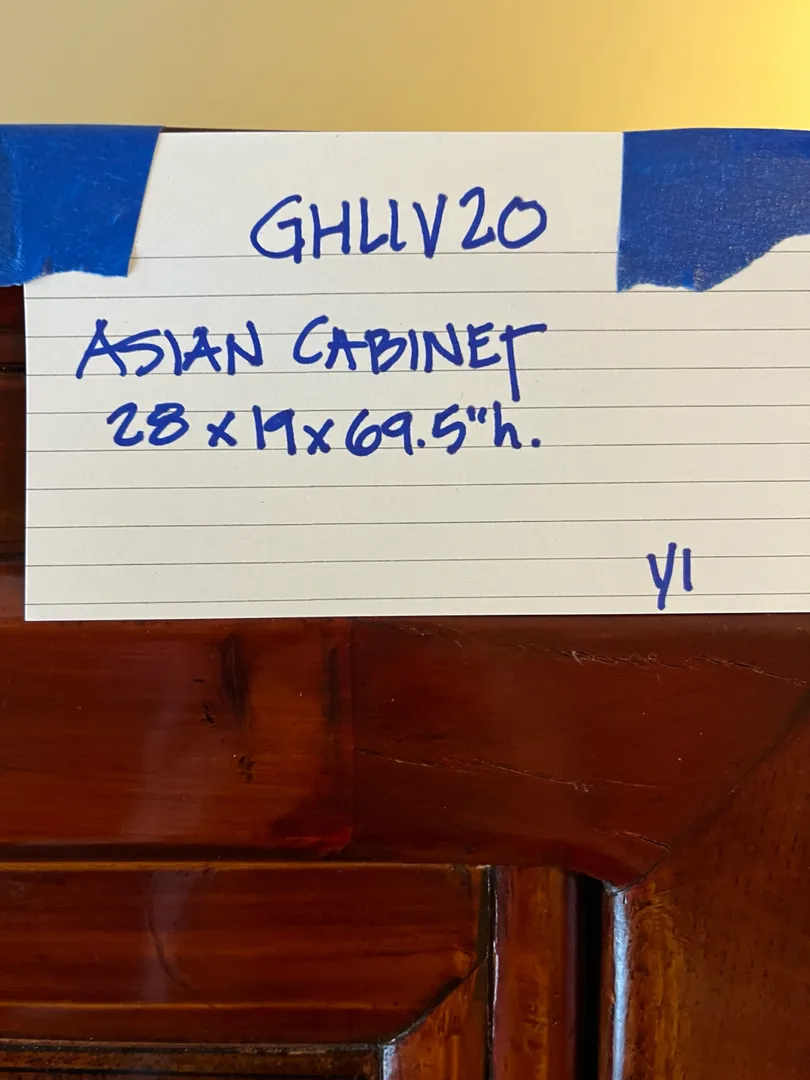 GHLIV20
ASIAN CABINET
28 x 19 x 69.5"h.
y1